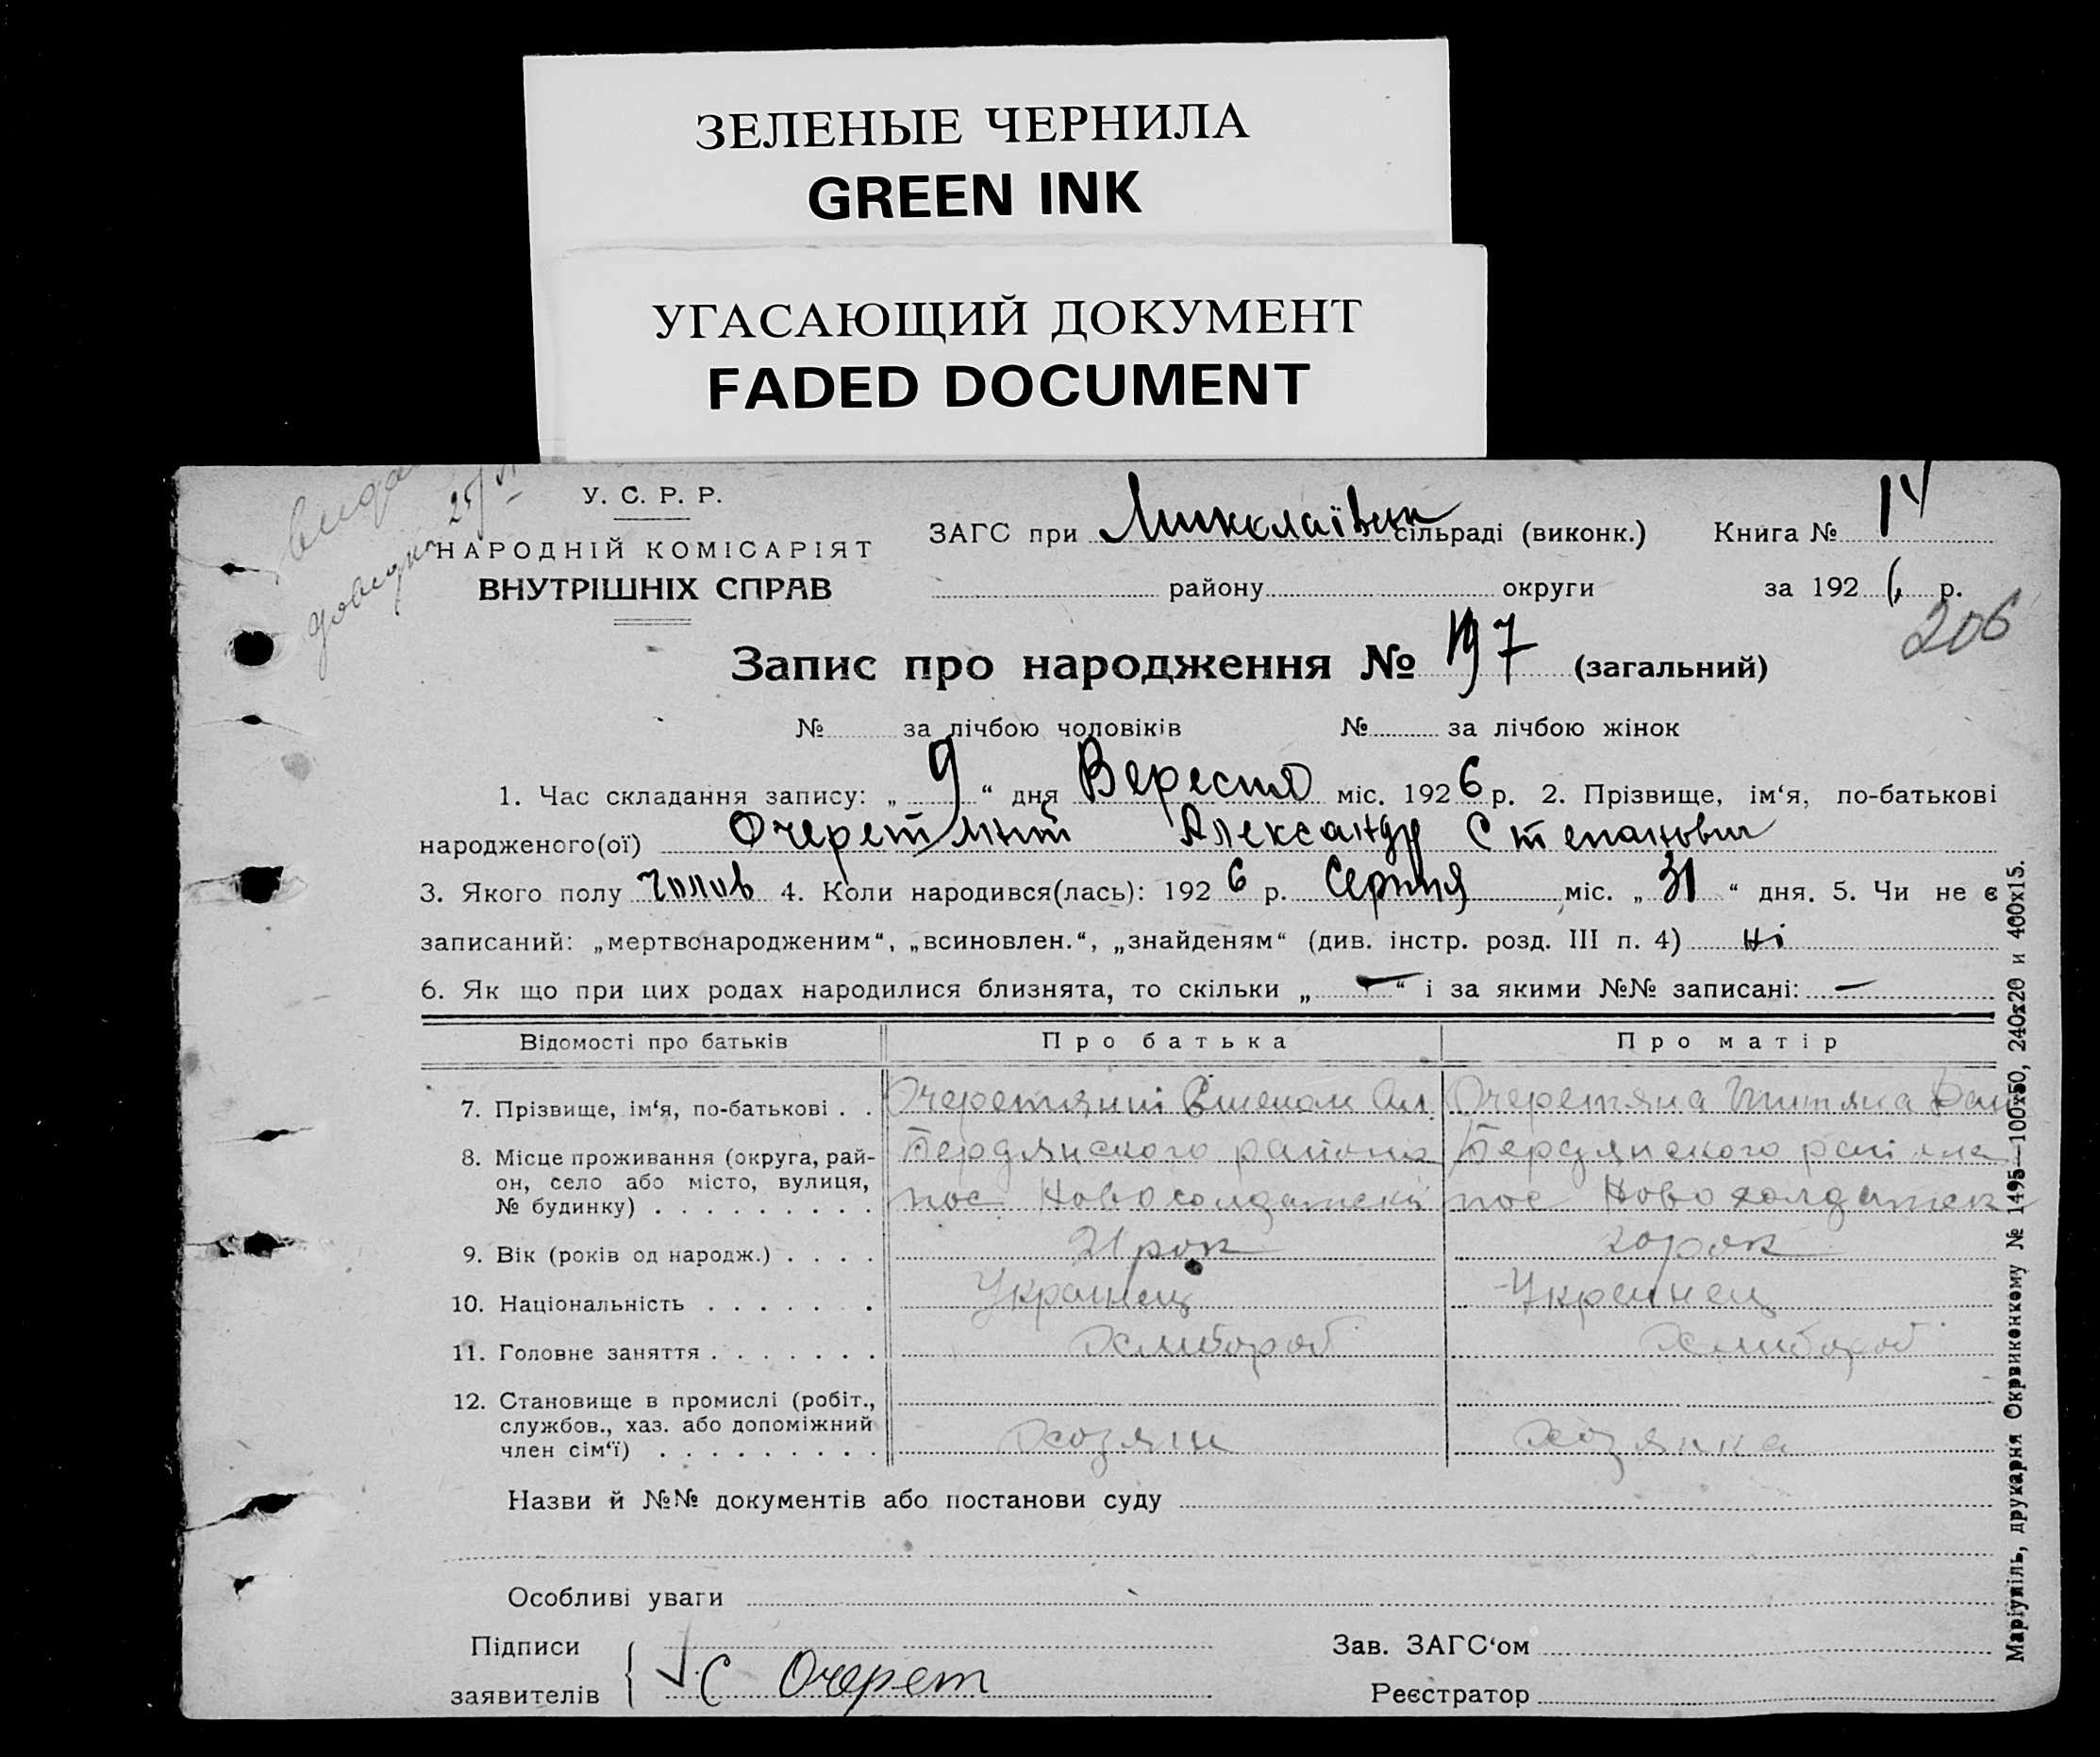 ЗЕЛЕНЫЕ ЧЕРНИЛА
GREEN INK
УГАСАЮЩИЙ ДОКУМЕНТ
FADED DOCUMENT
У. С. Р. Р.
НАРОДНІЙ КОМІСАРІЯТ
ВНУТРІШНІХ СПРАВ
ЗАГС при Миколаївск сільраді (виконк.) Книга №
району округи за 192 6 р.
206
Запис про народження № 197 (загальний)
№ за лічбою чоловіків № за лічбою жінок
1. Час складання запису: „ 9 “ дня Вересня міс. 192 6 р. 2. Прізвище, ім‘я, по-батькові
народженого(ої) Очеретяний Александр Степанович
3. Якого полу чолов 4. Коли народився(лась): 192 6 р. Серпня міс. „ 31 “ дня. 5. Чи не є
записаний: „мертвонародженим“, „всиновлен.“, „знайденям“ (див. інстр. розд. III п. 4) ні
6. Як що при цих родах народилися близнята, то скільки „ — “ і за якими №№ записані: —
Відомості про батьків Про батька Про матір
7. Прізвище, ім‘я, по-батькові . . Очеретяний Степан Очеретяна
8. Місце проживання (округа, рай- Бердянского района Бердянского района
он, село або місто, вулиця,
№ будинку) . . . . . . . . . пос Новосолдатский пос Новосолдатск
9. Вік (років од народж.) . . . . 21 рок 20 рок
10. Національність . . . . . . . Украинец Украинец
11. Головне заняття . . . . . . . Хлибороб Хлибороб
12. Становище в промислі (робіт.,
службов., хаз. або допоміжний
член сім‘ї) . . . . . . . . . Хозяин Хозянка
Назви й №№ документів або постанови суду
Особливі уваги
Підписи
заявителів С Очерет
Зав. ЗАГС‘ом
Реєстратор
Маріупіль, друкарня Окрвиконкому № 1495—100х50, 240х20 и 400х15.